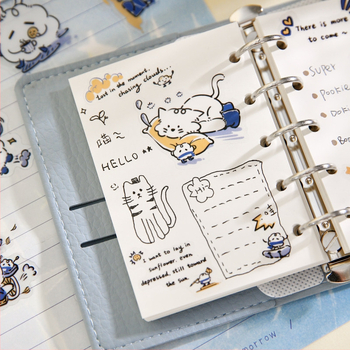 Lost in the moment,
chasing clouds...
喵~
HELLO
Hi~
I want to log in
sunflower even
depressed, still toward
the sun.
There is more
to come ~
Super
Pookie
Dok
Bo